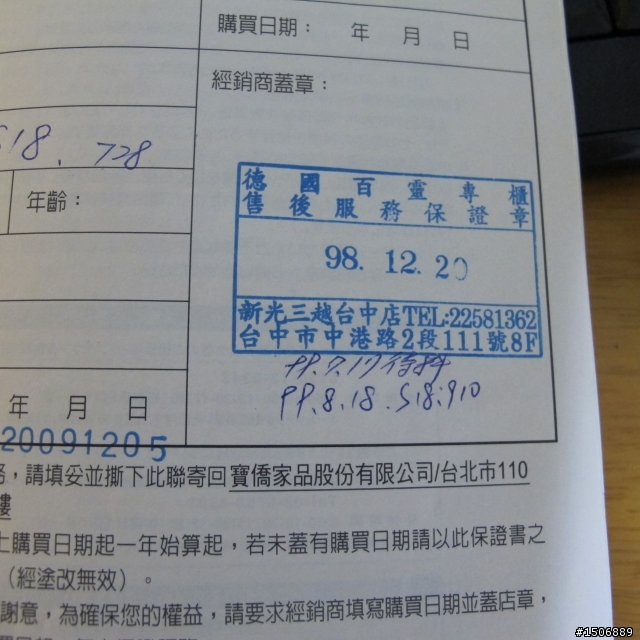 購買日期： 年 月 日
經銷商蓋章：
518. 728
年齡：
德國百靈專櫃
售後服務保證章
98. 12. 20
新光三越台中店TEL:22581362
台中市中港路2段111號8F
99.7.17待料
99.8.18.518.910
年 月 日
20091205
，請填妥並撕下此聯寄回寶僑家品股份有限公司/台北市110
樓
上購買日期起一年始算起，若未蓋有購買日期請以此保證書之
（經塗改無效）。
謝意，為確保您的權益，請要求經銷商填寫購買日期並蓋店章，
#1506889